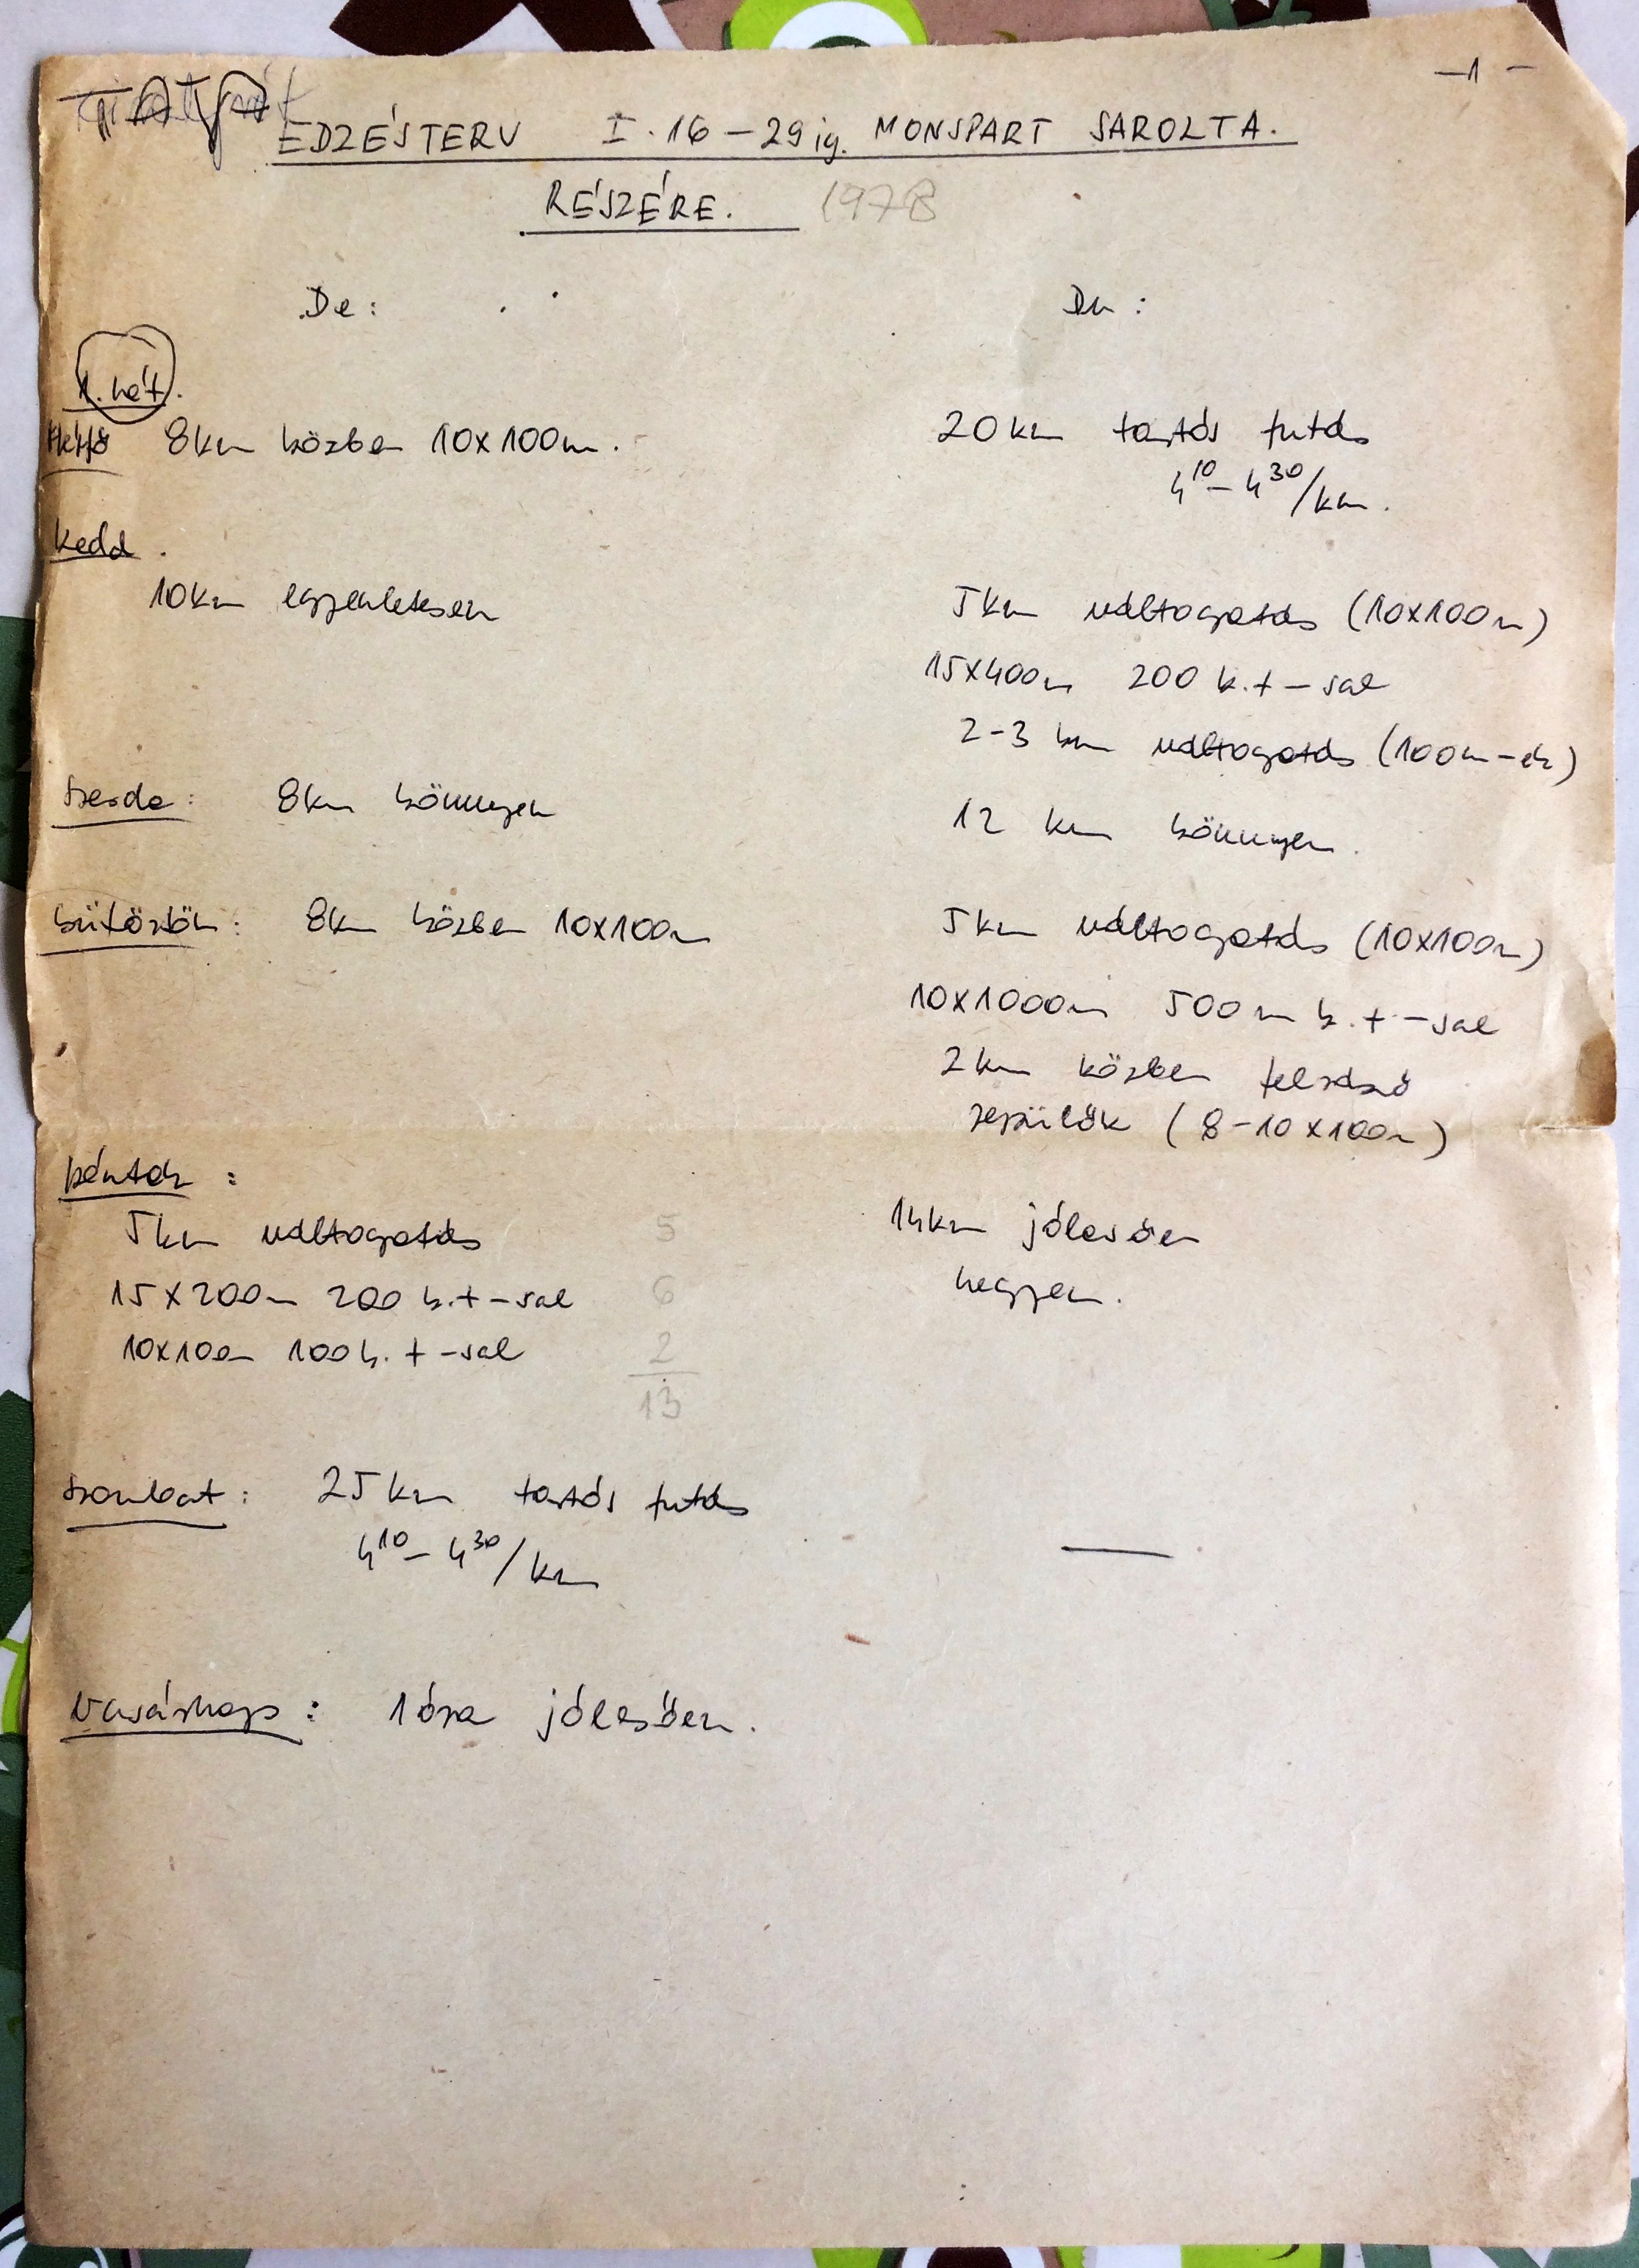 -1-
EDZÉSTERV I. 16-29 ig. MONSPART SAROLTA.
RÉSZÉRE. 1978
De: Du:
1. hét.
Hétfő 8km közben 10x100m. 20 km tartós futás
4¹⁰-4³⁰/km.
Kedd.
10km egyenletesen 5km váltogatás (10x100m)
15x400m 200 k.t-sal
2-3 km váltogatás (100m-ek)
Szerda: 8km könnyen 12 km könnyen.
Csütörtök: 8km közben 10x100m 5km váltogatás (10x100m)
10x1000m 500m k.t-sal
2km közben
repülők (8-10x100m)
péntek:
5km váltogatás 5 14km jólesően
15x200m 200 k.t-sal 6 hegyen.
10x100m 100 k.t-sal 2
13
Szombat: 25 km tartós futás
4¹⁰-4³⁰/km —
Vasárnap: 1 óra jólesően.